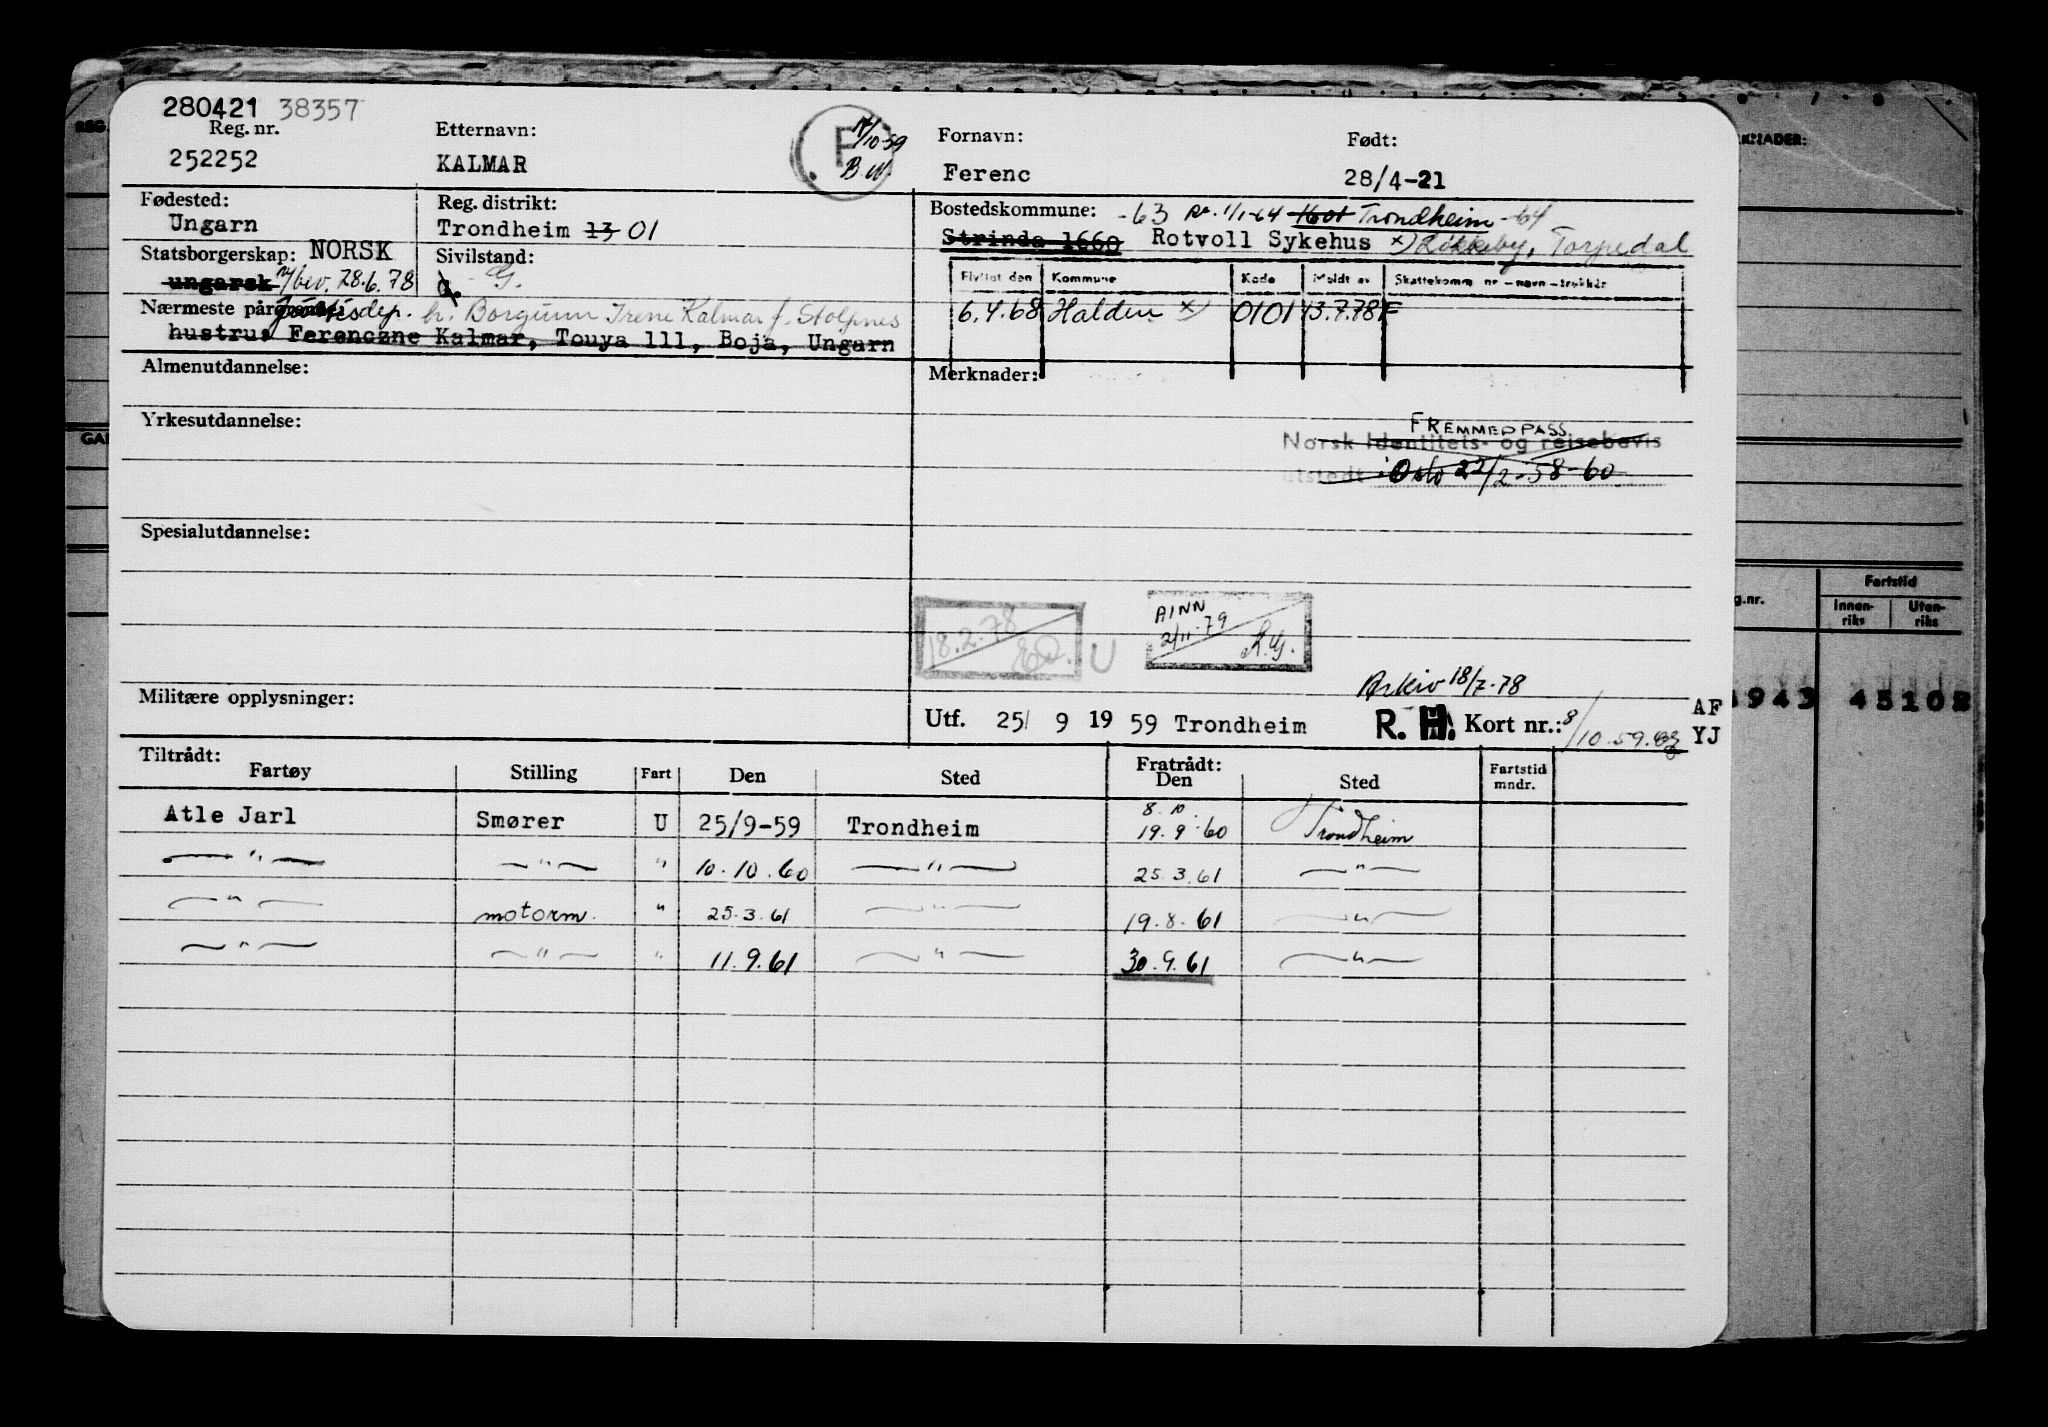 280421 38357
Reg. nr. Etternavn: Fornavn: Født:
252252 KALMAR F 10-59 B.W. Ferenc 28/4-21
Fødested: Reg. distrikt: Bostedskommune: -63 1/1-64 1601 Trondheim -64
Ungarn Trondheim 13 01 Strinda 1660 Rotvoll Sykehus x) Torpedal
Statsborgerskap: NORSK Sivilstand:
ungarsk 28.6.78 G.
Flyttet den Kommune Kode Meldt av Skattekomm nr - navn - trekkår
6.4.68 Halden x) 0101 13.7.78 F
Nærmeste pårørende: h. Borgunn Irene Kalmar f. Stolpnes
hustru: Ferenczne Kalmar, Touya 111, Boja, Ungarn
Almenutdannelse: Merknader:
Yrkesutdannelse:
FREMMEDPASS
Norsk Identitets- og reisebevis
utstedt Oslo 22/2-58-60
Spesialutdannelse:
18.2.78 U
AINN 2/11-79
Arkiv 18/7-78
Militære opplysninger:
Utf. 25/ 9 19 59 Trondheim R. H. Kort nr.: 8/10.59. AF YJ
Tiltrådt: Fratrådt:
Fartøy Stilling Fart Den Sted Den Sted Fartstid mndr.
8.10.
Atle Jarl Smører U 25/9-59 Trondheim 19.9.60 Trondheim
— " — — " — " 10.10.60 — " — 25.3.61 — " —
— " — motorm. " 25.3.61 — " — 19.8.61 — " —
— " — — " — " 11.9.61 — " — 30.9.61 — " —
Fartstid
g.nr. Innen-riks Uten-riks
943 45102